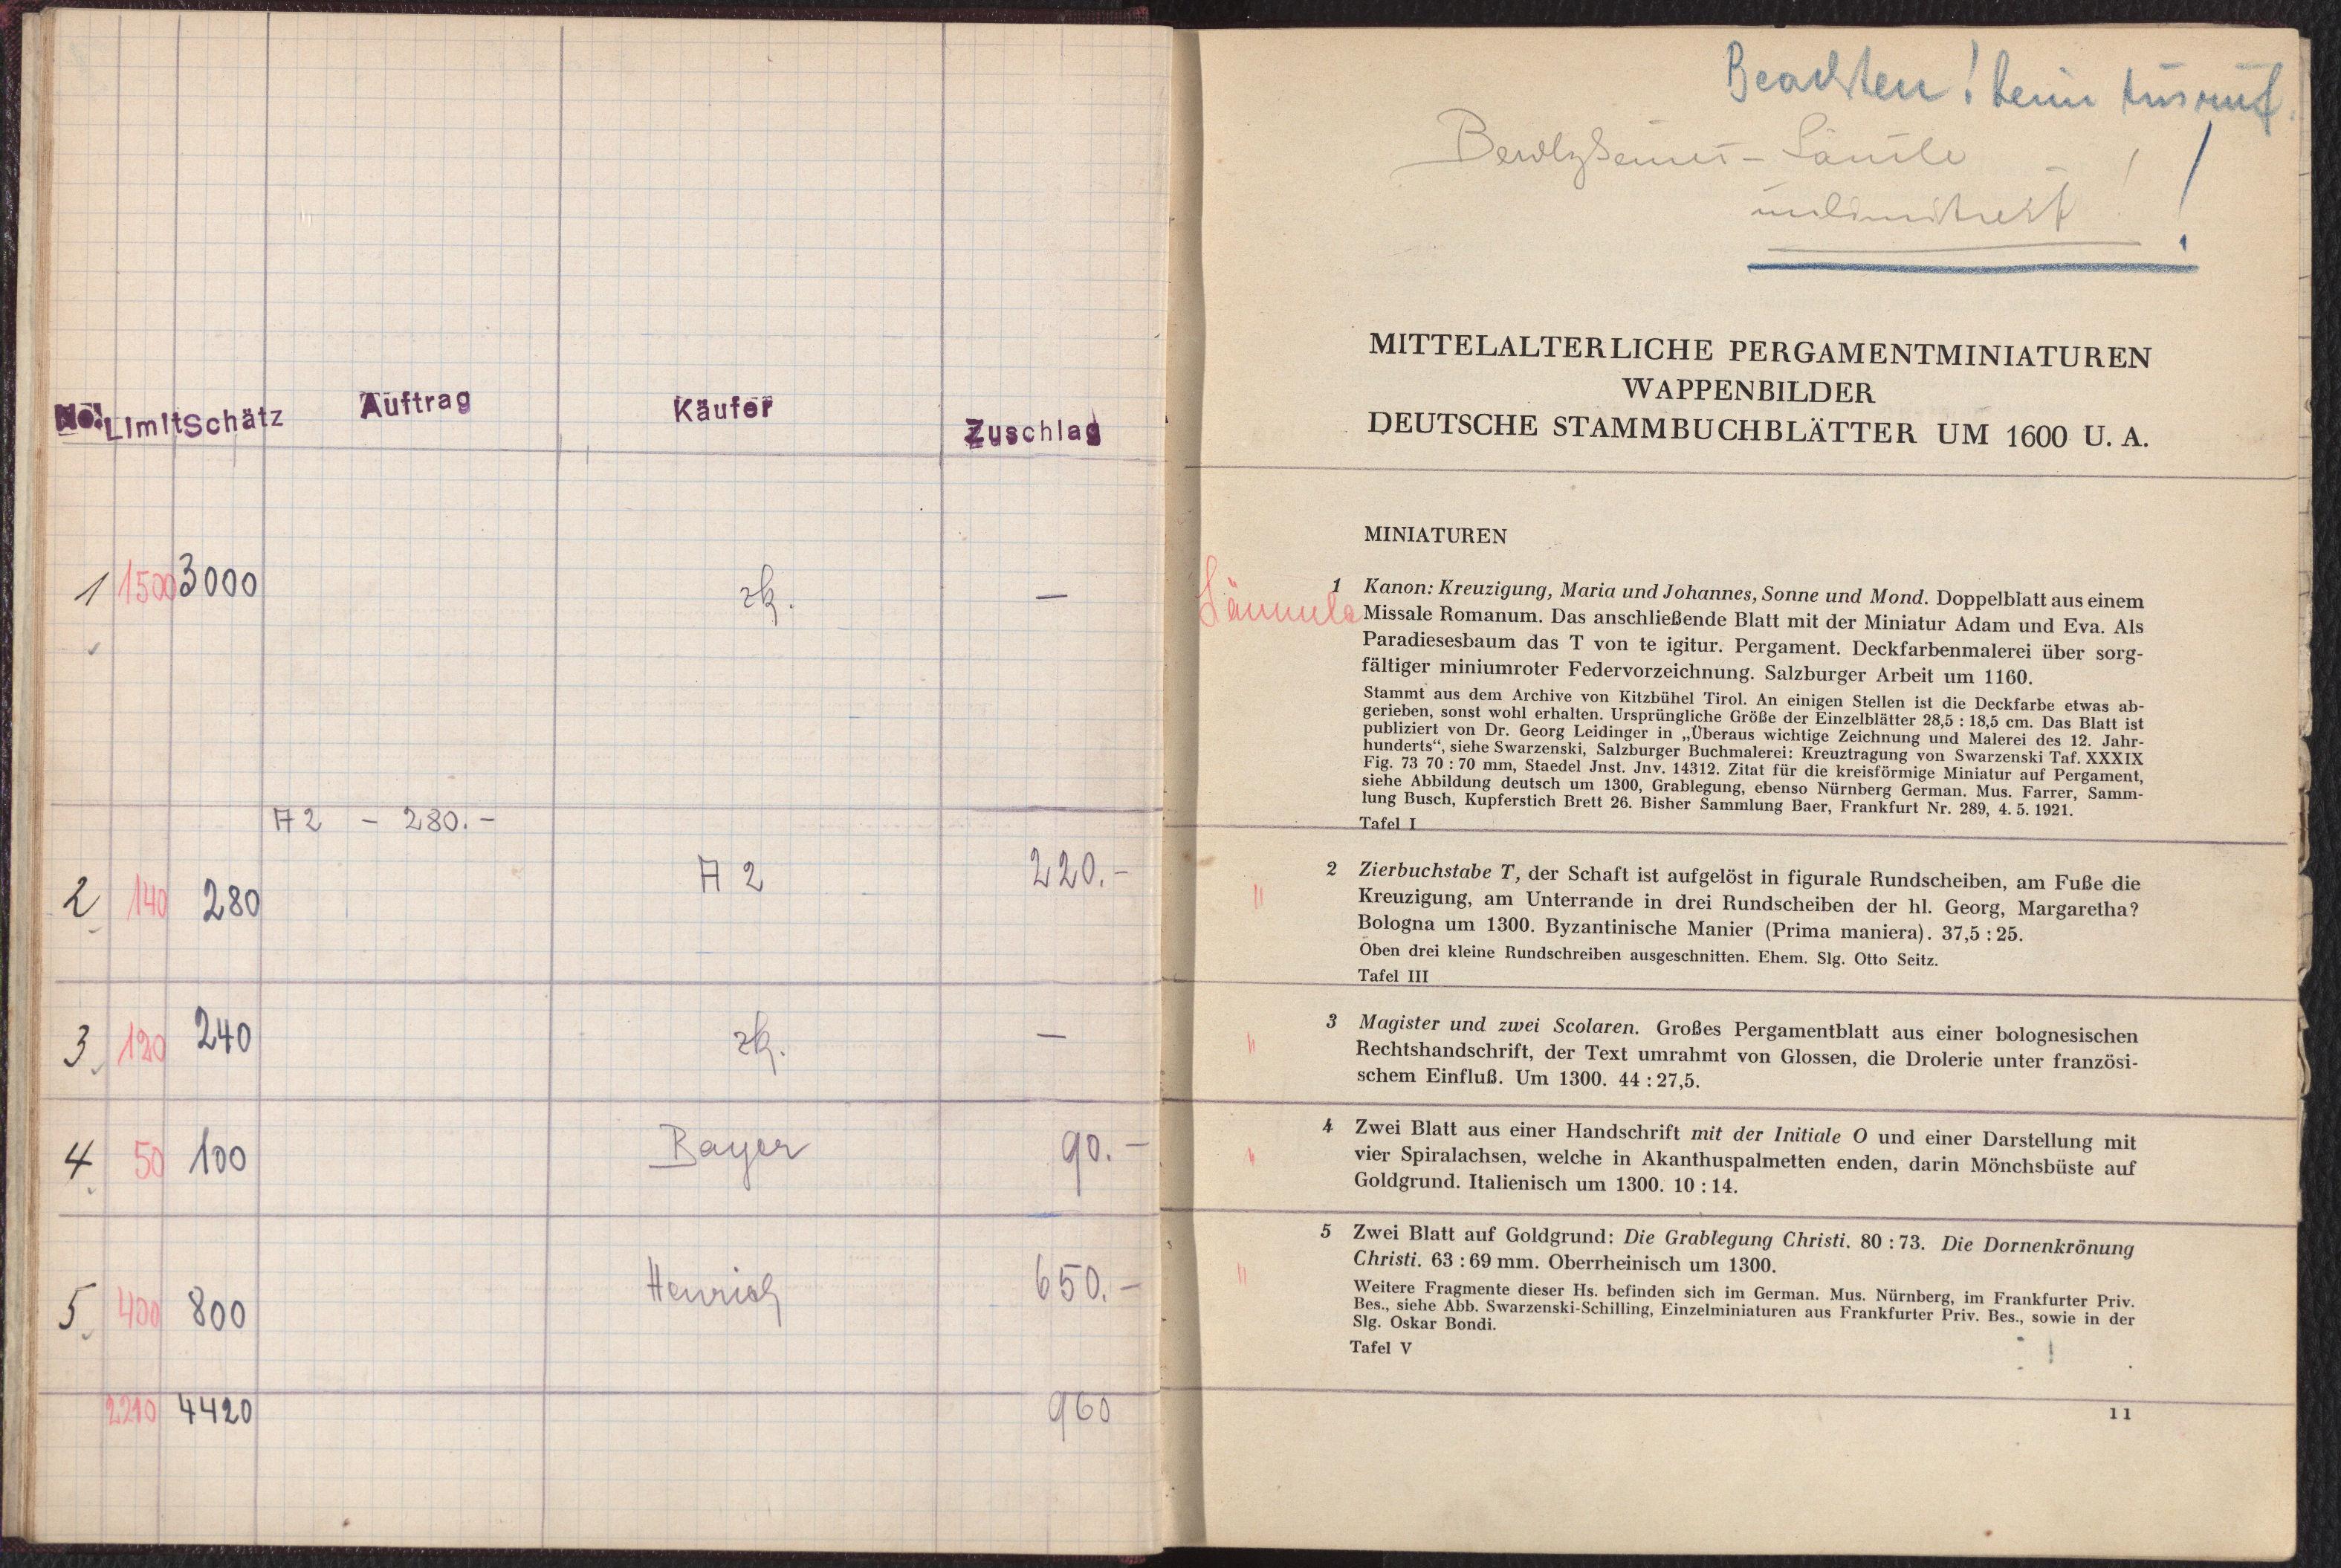 No. Limit Schätz Auftrag Käufer Zuschlag
1 1500 3000 zk. —
A2 – 280.–
2 140 280 A 2 220.–
3 120 240 zk. —
4 50 100 Bayer 90.–
5 400 800 Henrich 650.–
2210 4420 960
Beachten! beim Ausruf.
unlimitiert!
MITTELALTERLICHE PERGAMENTMINIATUREN
WAPPENBILDER
DEUTSCHE STAMMBUCHBLÄTTER UM 1600 U. A.
MINIATUREN
1 Kanon: Kreuzigung, Maria und Johannes, Sonne und Mond. Doppelblatt aus einem
Missale Romanum. Das anschließende Blatt mit der Miniatur Adam und Eva. Als
Paradiesesbaum das T von te igitur. Pergament. Deckfarbenmalerei über sorg-
fältiger miniumroter Federvorzeichnung. Salzburger Arbeit um 1160.
Stammt aus dem Archive von Kitzbühel Tirol. An einigen Stellen ist die Deckfarbe etwas ab-
gerieben, sonst wohl erhalten. Ursprüngliche Größe der Einzelblätter 28,5 : 18,5 cm. Das Blatt ist
publiziert von Dr. Georg Leidinger in „Überaus wichtige Zeichnung und Malerei des 12. Jahr-
hunderts“, siehe Swarzenski, Salzburger Buchmalerei: Kreuztragung von Swarzenski Taf. XXXIX
Fig. 73 70 : 70 mm, Staedel Jnst. Jnv. 14312. Zitat für die kreisförmige Miniatur auf Pergament,
siehe Abbildung deutsch um 1300, Grablegung, ebenso Nürnberg German. Mus. Farrer, Samm-
lung Busch, Kupferstich Brett 26. Bisher Sammlung Baer, Frankfurt Nr. 289, 4. 5. 1921.
Tafel I
" 2 Zierbuchstabe T, der Schaft ist aufgelöst in figurale Rundscheiben, am Fuße die
Kreuzigung, am Unterrande in drei Rundscheiben der hl. Georg, Margaretha?
Bologna um 1300. Byzantinische Manier (Prima maniera). 37,5 : 25.
Oben drei kleine Rundschreiben ausgeschnitten. Ehem. Slg. Otto Seitz.
Tafel III
" 3 Magister und zwei Scolaren. Großes Pergamentblatt aus einer bolognesischen
Rechtshandschrift, der Text umrahmt von Glossen, die Drolerie unter französi-
schem Einfluß. Um 1300. 44 : 27,5.
" 4 Zwei Blatt aus einer Handschrift mit der Initiale O und einer Darstellung mit
vier Spiralachsen, welche in Akanthuspalmetten enden, darin Mönchsbüste auf
Goldgrund. Italienisch um 1300. 10 : 14.
" 5 Zwei Blatt auf Goldgrund: Die Grablegung Christi. 80 : 73. Die Dornenkrönung
Christi. 63 : 69 mm. Oberrheinisch um 1300.
Weitere Fragmente dieser Hs. befinden sich im German. Mus. Nürnberg, im Frankfurter Priv.
Bes., siehe Abb. Swarzenski-Schilling, Einzelminiaturen aus Frankfurter Priv. Bes., sowie in der
Slg. Oskar Bondi.
Tafel V
11